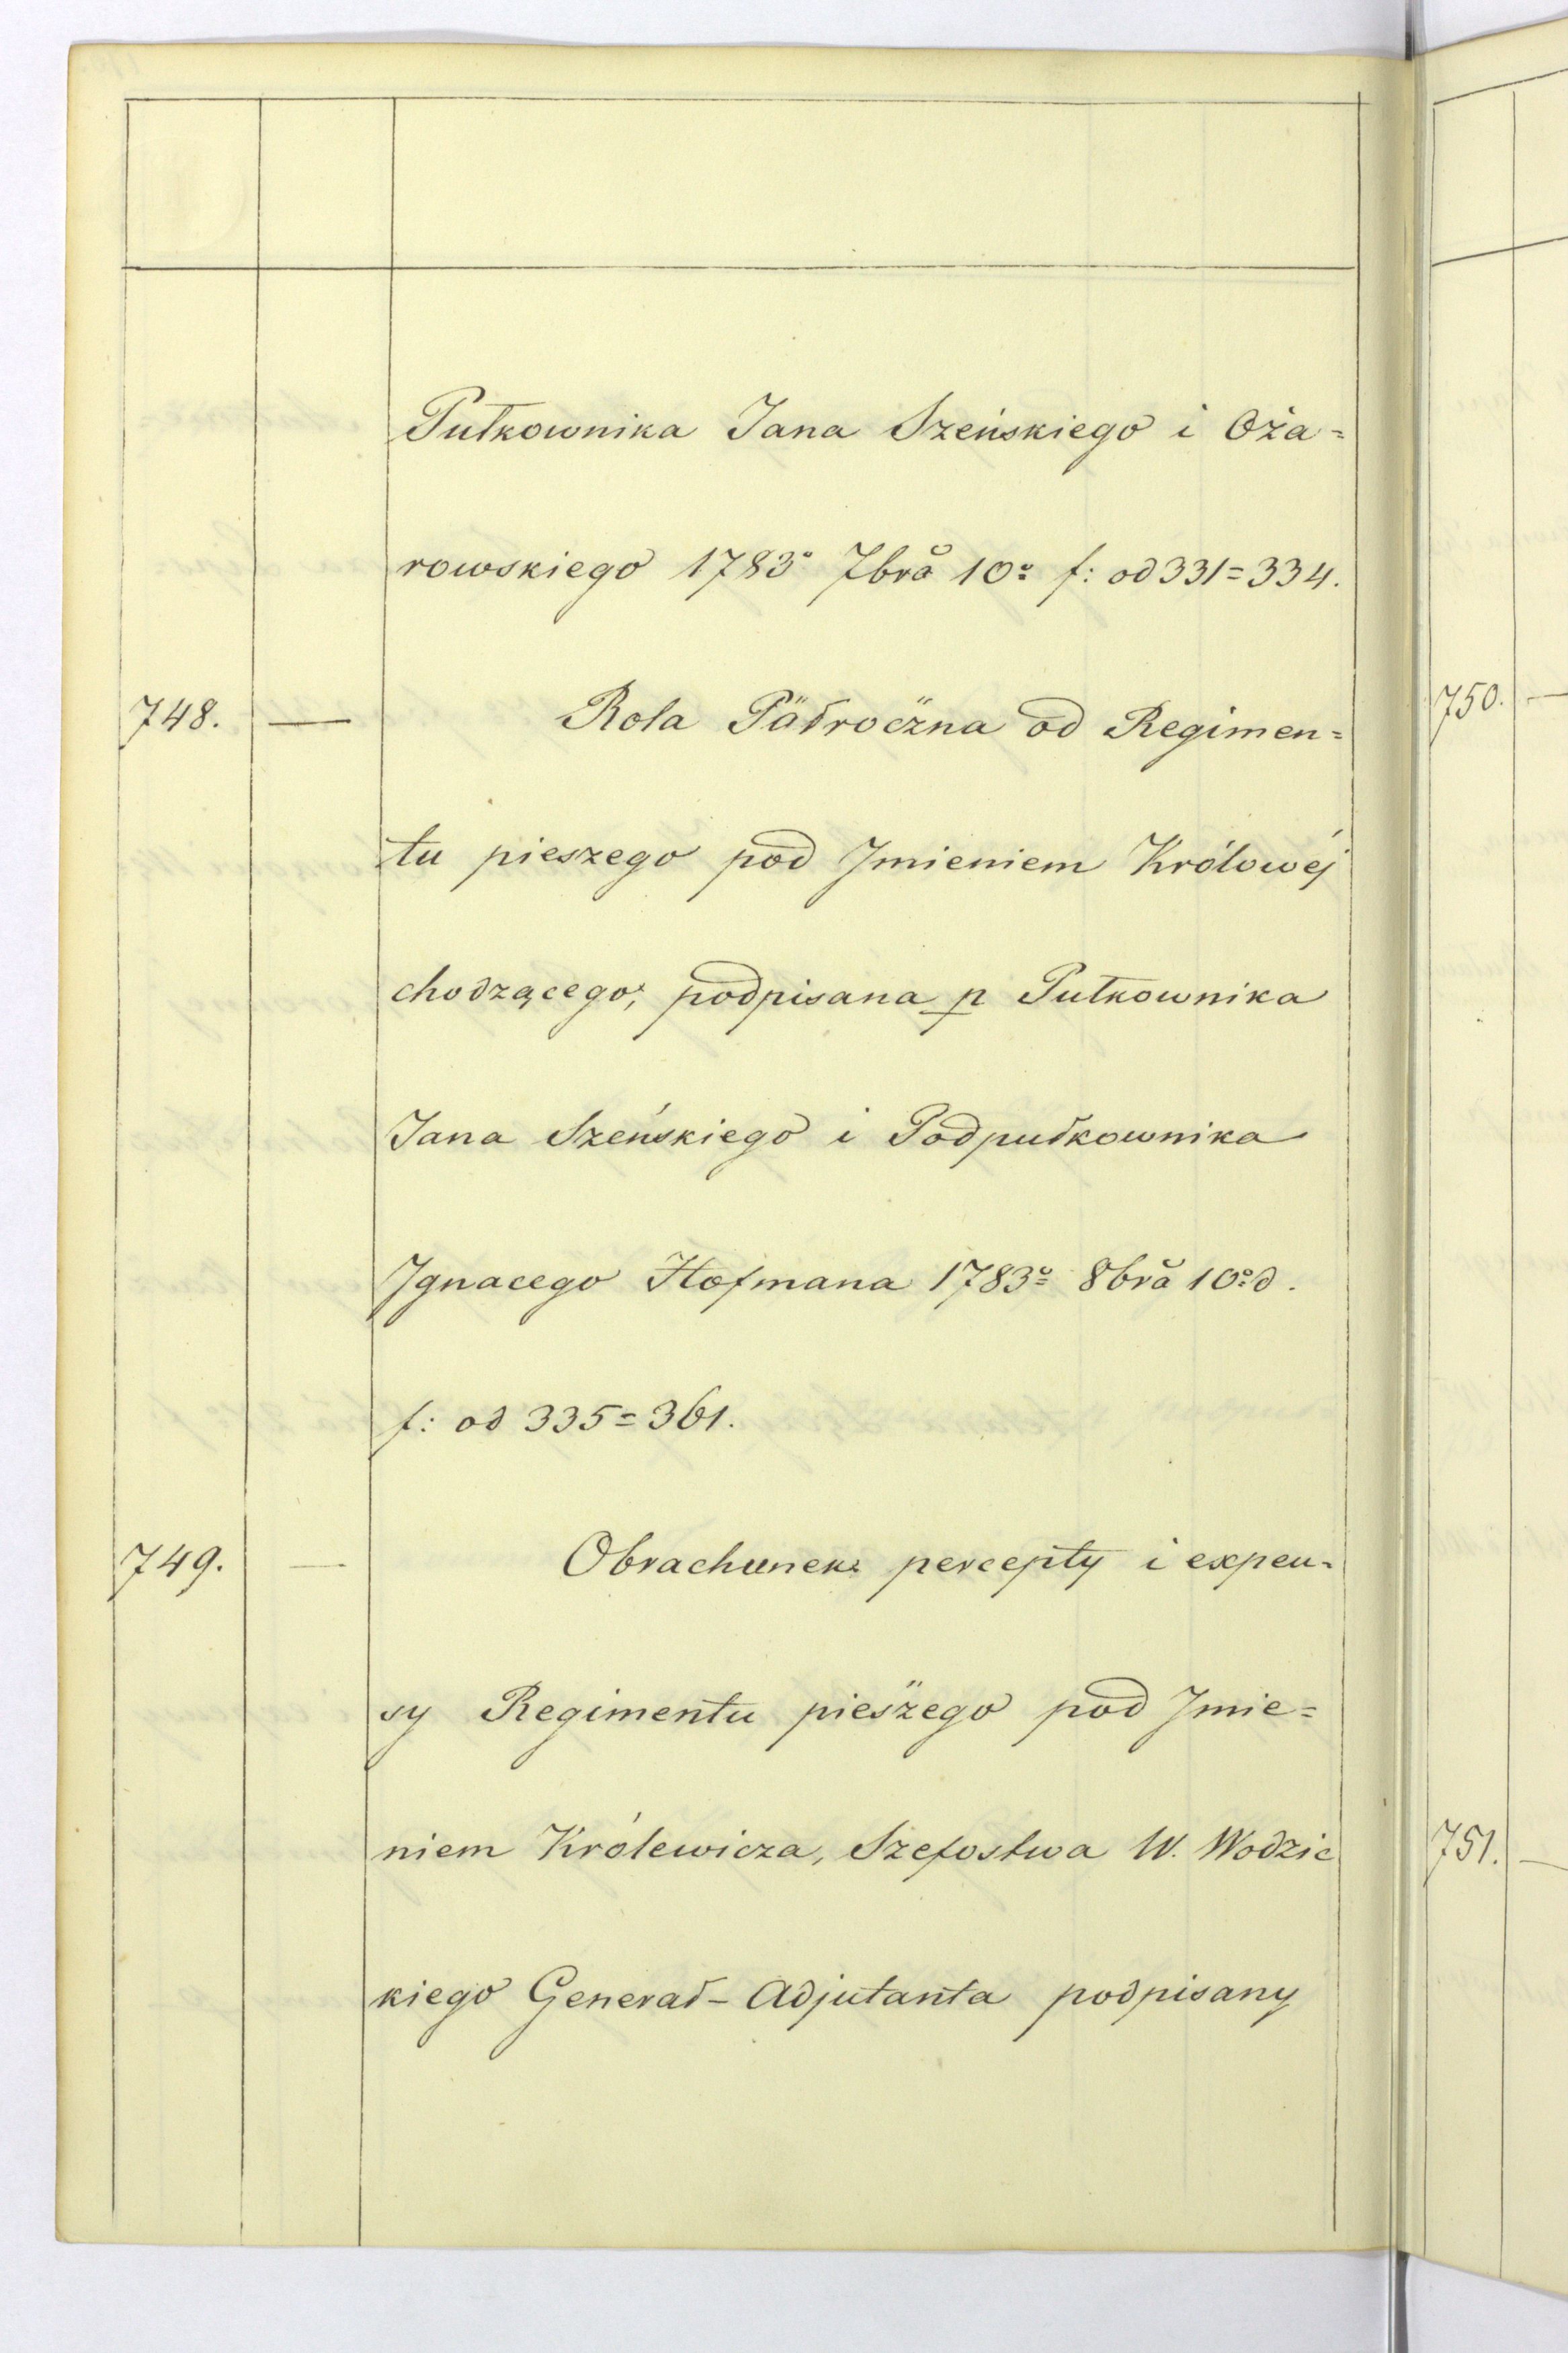 Pułkownika Jana Szeńskiego i Oża=
rowskiego 1783° 7brã 10° f: od 331=334.
748. — Rola Pãłroc̈zna od Regimen=
tu pieszego pod Jmieniem Królowéj
chodzącego; podpisana p Pułkownika
Jana Szeńskiego i Podpułkownika
Jgnacego Hofmana 1783° 8brã 10° d.
f: od 335=361.
749. — Obrachunek percepty i expen=
sy Regimentu pieszego pod Jmie=
niem Królewicza, Szefostwa W. Wodzic
kiego Generał-Adjutanta podpisany
750. —
751. —